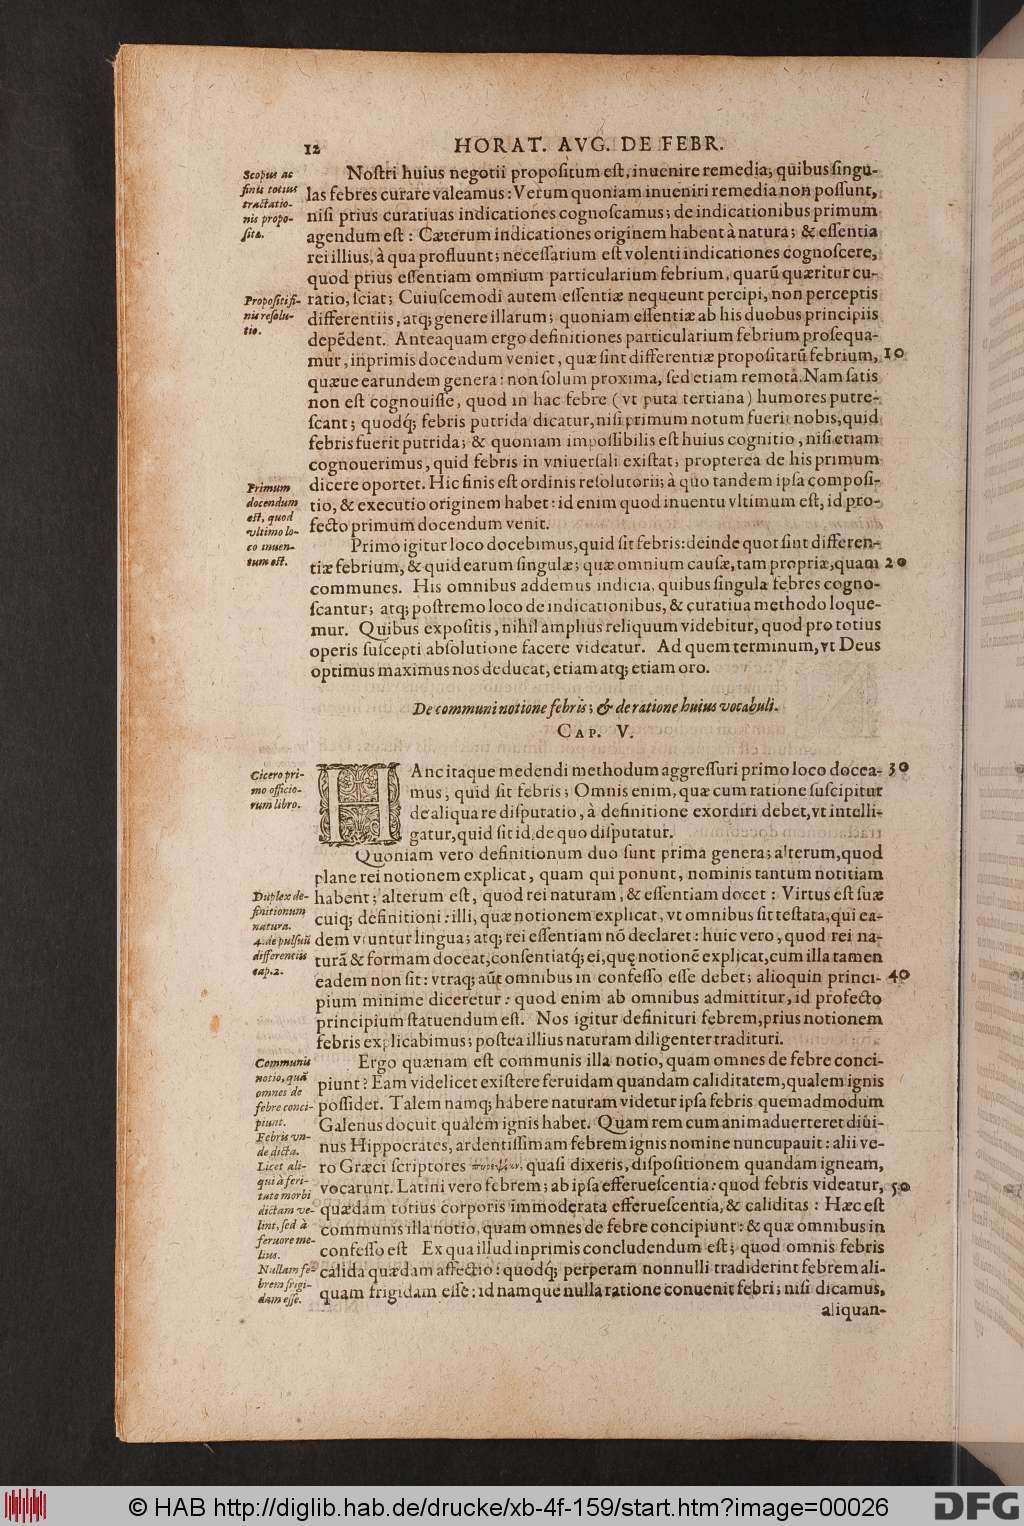 12
HORAT. AVG. DE FEBR.
Scopus ac
finis totius
tractatio-
nis propo-
sitæ.
Noſtri huius negotii propoſitum eſt, inuenire remedia; quibus ſingu-
las febres curare valeamus: Verum quoniam inueniri remedia non poſſunt,
niſi prius curatiuas indicationes cognoſcamus; de indicationibus primum
agendum eſt: Cæterum indicationes originem habent à natura; & eſſentia
rei illius, à qua profluunt; neceſſarium eſt volenti indicationes cognoſcere,
quod prius eſſentiam omnium particularium febrium, quarũ quæritur cu-
Propoſiti fi-
nis reſolu-
tio.
ratio, ſciat; Cuiuſcemodi autem eſſentiæ nequeunt percipi, non perceptis
differentiis, atq; genere illarum; quoniam eſſentiæ ab his duobus principiis
depẽdent. Anteaquam ergo definitiones particularium febrium proſequa-
mur, inprimis docendum veniet, quæ ſint differentiæ propoſitarũ febrium, 10
quæue earundem genera: non ſolum proxima, ſed etiam remota. Nam ſatis
non eſt cognouiſſe, quod in hac febre (vt puta tertiana) humores putre-
ſcant; quodq́; febris putrida dicatur, niſi primum notum fuerit nobis, quid
febris fuerit putrida; & quoniam impoſſibilis eſt huius cognitio, niſi etiam
cognouerimus, quid febris in vniuerſali exiſtat; propterea de his primum
Primum
docendum
eſt, quod
vltimo lo-
co inuen-
tum eſt.
dicere oportet. Hic finis eſt ordinis reſolutorii; à quo tandem ipſa compoſi-
tio, & executio originem habet: id enim quod inuentu vltimum eſt, id pro-
fecto primum docendum venit.
Primo igitur loco docebimus, quid ſit febris: deinde quot ſint differen-
tiæ febrium, & quid earum ſingulæ; quæ omnium cauſæ, tam propriæ, quam 20
communes. His omnibus addemus indicia, quibus ſingula febres cogno-
ſcantur; atq; poſtremo loco de indicationibus, & curatiua methodo loque-
mur. Quibus expoſitis, nihil amplius reliquum videbitur, quod pro totius
operis ſuſcepti abſolutione facere videatur. Ad quem terminum, vt Deus
optimus maximus nos deducat, etiam atq; etiam oro.
De communi notione febris; & de ratione huius vocabuli.
CAP. V.
Cicero pri-
mo officio-
rum libro.
HAnc itaque medendi methodum aggreſſuri primo loco docea- 30
mus, quid ſit febris; Omnis enim, quæ cum ratione ſuſcipitur
de aliqua re diſputatio, à definitione exordiri debet, vt intelli-
gatur, quid ſit id, de quo diſputatur.
Quoniam vero definitionum duo ſunt prima genera; alterum, quod
plane rei notionem explicat, quam qui ponunt, nominis tantum notitiam
Duplex de-
finitionum
natura.
4. de pulſuũ
differentiis
cap. 2.
habent; alterum eſt, quod rei naturam, & eſſentiam docet: Virtus eſt ſuæ
cuiq; definitioni: illi, quæ notionem explicat, vt omnibus ſit teſtata, qui ea-
dem vtuntur lingua; atq; rei eſſentiam nõ declaret: huic vero, quod rei na-
turã & formam doceat, conſentiatq́; ei, quę notionẽ explicat, cum illa tamen
eadem non ſit: vtraq; aũt omnibus in confeſſo eſſe debet; alioquin princi- 40
pium minime diceretur: quod enim ab omnibus admittitur, id profecto
principium ſtatuendum eſt. Nos igitur definituri febrem, prius notionem
febris explicabimus; poſtea illius naturam diligenter tradituri.
Communis
notio, quã
omnes de
febre conci-
piunt.
Febris vn-
de dicta.
Licet ali-
qui à feri-
tate morbi
dictam ve-
lint, ſed à
feruore me-
lius.
Nullam fe-
brem frigi-
dam eſſe.
Ergo quænam eſt communis illa notio, quam omnes de febre conci-
piunt? Eam videlicet exiſtere feruidam quandam caliditatem, qualem ignis
poſſidet. Talem namq; habere naturam videtur ipſa febris quemadmodum
Galenus docuit qualem ignis habet. Quam rem cum animaduerteret diui-
nus Hippocrates, ardentiſſimam febrem ignis nomine nuncupauit: alii ve-
ro Græci ſcriptores quaſi dixeris, diſpoſitionem quandam igneam,
vocarunt. Latini vero febrem; ab ipſa efferueſcentia: quod febris videatur, 50
quædam totius corporis immoderata efferueſcentia, & caliditas: Hæc eſt
communis illa notio, quam omnes de febre concipiunt: & quæ omnibus in
confeſſo eſt Ex qua illud inprimis concludendum eſt; quod omnis febris
calida quædam affectio: quodq́; perperam nonnulli tradiderint febrem ali-
quam frigidam eſſe: id namque nulla ratione conuenit febri; niſi dicamus,
aliquan-
© HAB http://diglib.hab.de/drucke/xb-4f-159/start.htm?image=00026
DFG